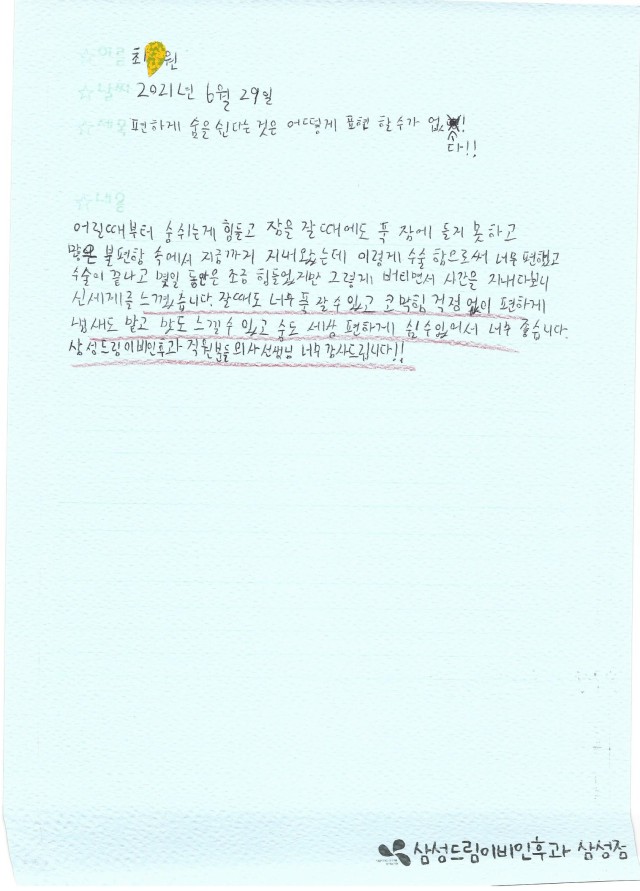 최 원
2021년 6월 29일
편하게 숨을 쉰다는것은 어떻게 표현 할수가 없다!!
어릴때부터 숨쉬는게 힘들고 잠을 잘 때에도 푹 잠에 들지 못하고
많은 불편함 속에서 지금까지 지내왔는데 이렇게 수술 함으로써 너무 편했고
수술이 끝나고 몇일 동안은 조금 힘들었지만 그렇게 버티면서 시간을 지내다보니
신세계를 느꼈습니다. 잘때도 너무 푹 잘 수 있고 코막힘 걱정 없이 편하게
냄새도 맡고 맛도 느낄수 있고 숨도 세상 편하게 쉴 수있어서 너무 좋습니다.
삼성드림이비인후과 직원분들 의사선생님 너무 감사드립니다!!
삼성드림이비인후과 삼성점